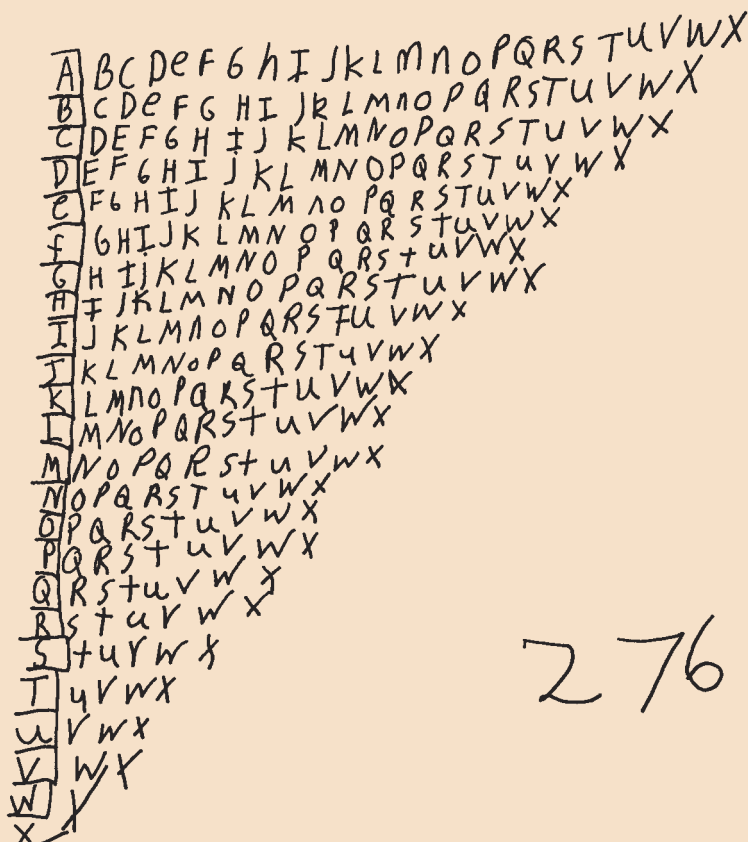 A B C D e F G h I J k L m n O P Q R S T U V W X
B C D e F G H I J k L m n O P Q R S T U V W X
C D E F G H I J K L M N O P Q R S T U V W X
D E F G H I J K L M N O P Q R S T u V W X
e F G H I J K L M n O P Q R S T U V W X
f G H I J K L M N O P Q R S t u V W X
G H I j K L M N O P Q R S t u V W X
H I J K L M N O P Q R S T U V W X
I J K L M n O P Q R S T U V W X
J K L M N O P Q R S T u V W X
K L M n O P Q R S t U V W X
L M N O P Q R S t u V W X
M N O P Q R S t u V W X
N O P Q R S T u V W X
O P Q R S t u V W X
P Q R S t u V W X
Q R S t u V W X
R S t u V W X
S t u V W X
T u V W X
u V W X
V W X
W X
X
276